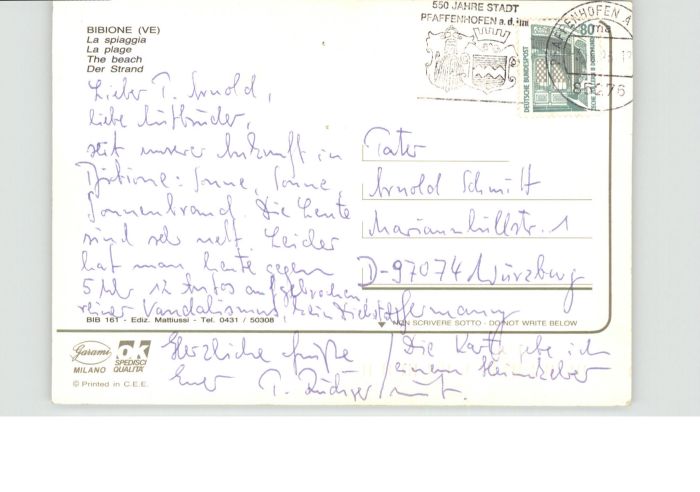 BIBIONE (VE)
La spiaggia
La plage
The beach
Der Strand
550 JAHRE STADT
PFAFFENHOFEN a. d. Ilm
PFAFFENHOFEN
85276
80
DEUTSCHE BUNDESPOST
Lieber P. Arnold,
liebe Mitbrüder,
seit unserer Ankunft in
Bibione: Sonne, Sonne,
Sonnenbrand. Die Leute
sind sehr nett. Leider
hat man heute gegen
5 Uhr 12 Autos aufgebrochen
reiner Vandalismus kein Diebstahl
Pater
Arnold Schmitt
Mariannhillstr. 1
D-97074 Würzburg
Germany
BIB 161 - Ediz. Mattiussi - Tel. 0431 / 50308
NON SCRIVERE SOTTO - DO NOT WRITE BELOW
Herzliche Grüße
Euer P. Rüdiger
Die Karte gebe ich
einem Heimkehrer
mit.
Garami
MILANO
OK
SPEDISCI
QUALITÀ
© Printed in C.E.E.